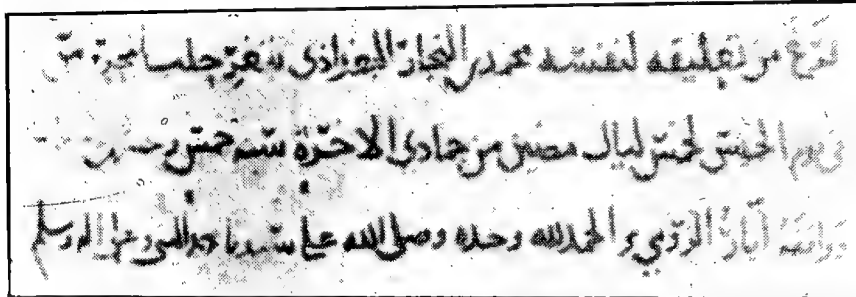 فرغ من تعليقه لنفسه محمد بن النجار البغدادي بثغر حلب
في يوم الخميس لخمس ليال مضين من جمادي الاخرة سنة خمس
أيار الرومي و الحمد لله وحده وصلى الله على سيدنا محمد النبي وعلى اله وسلم